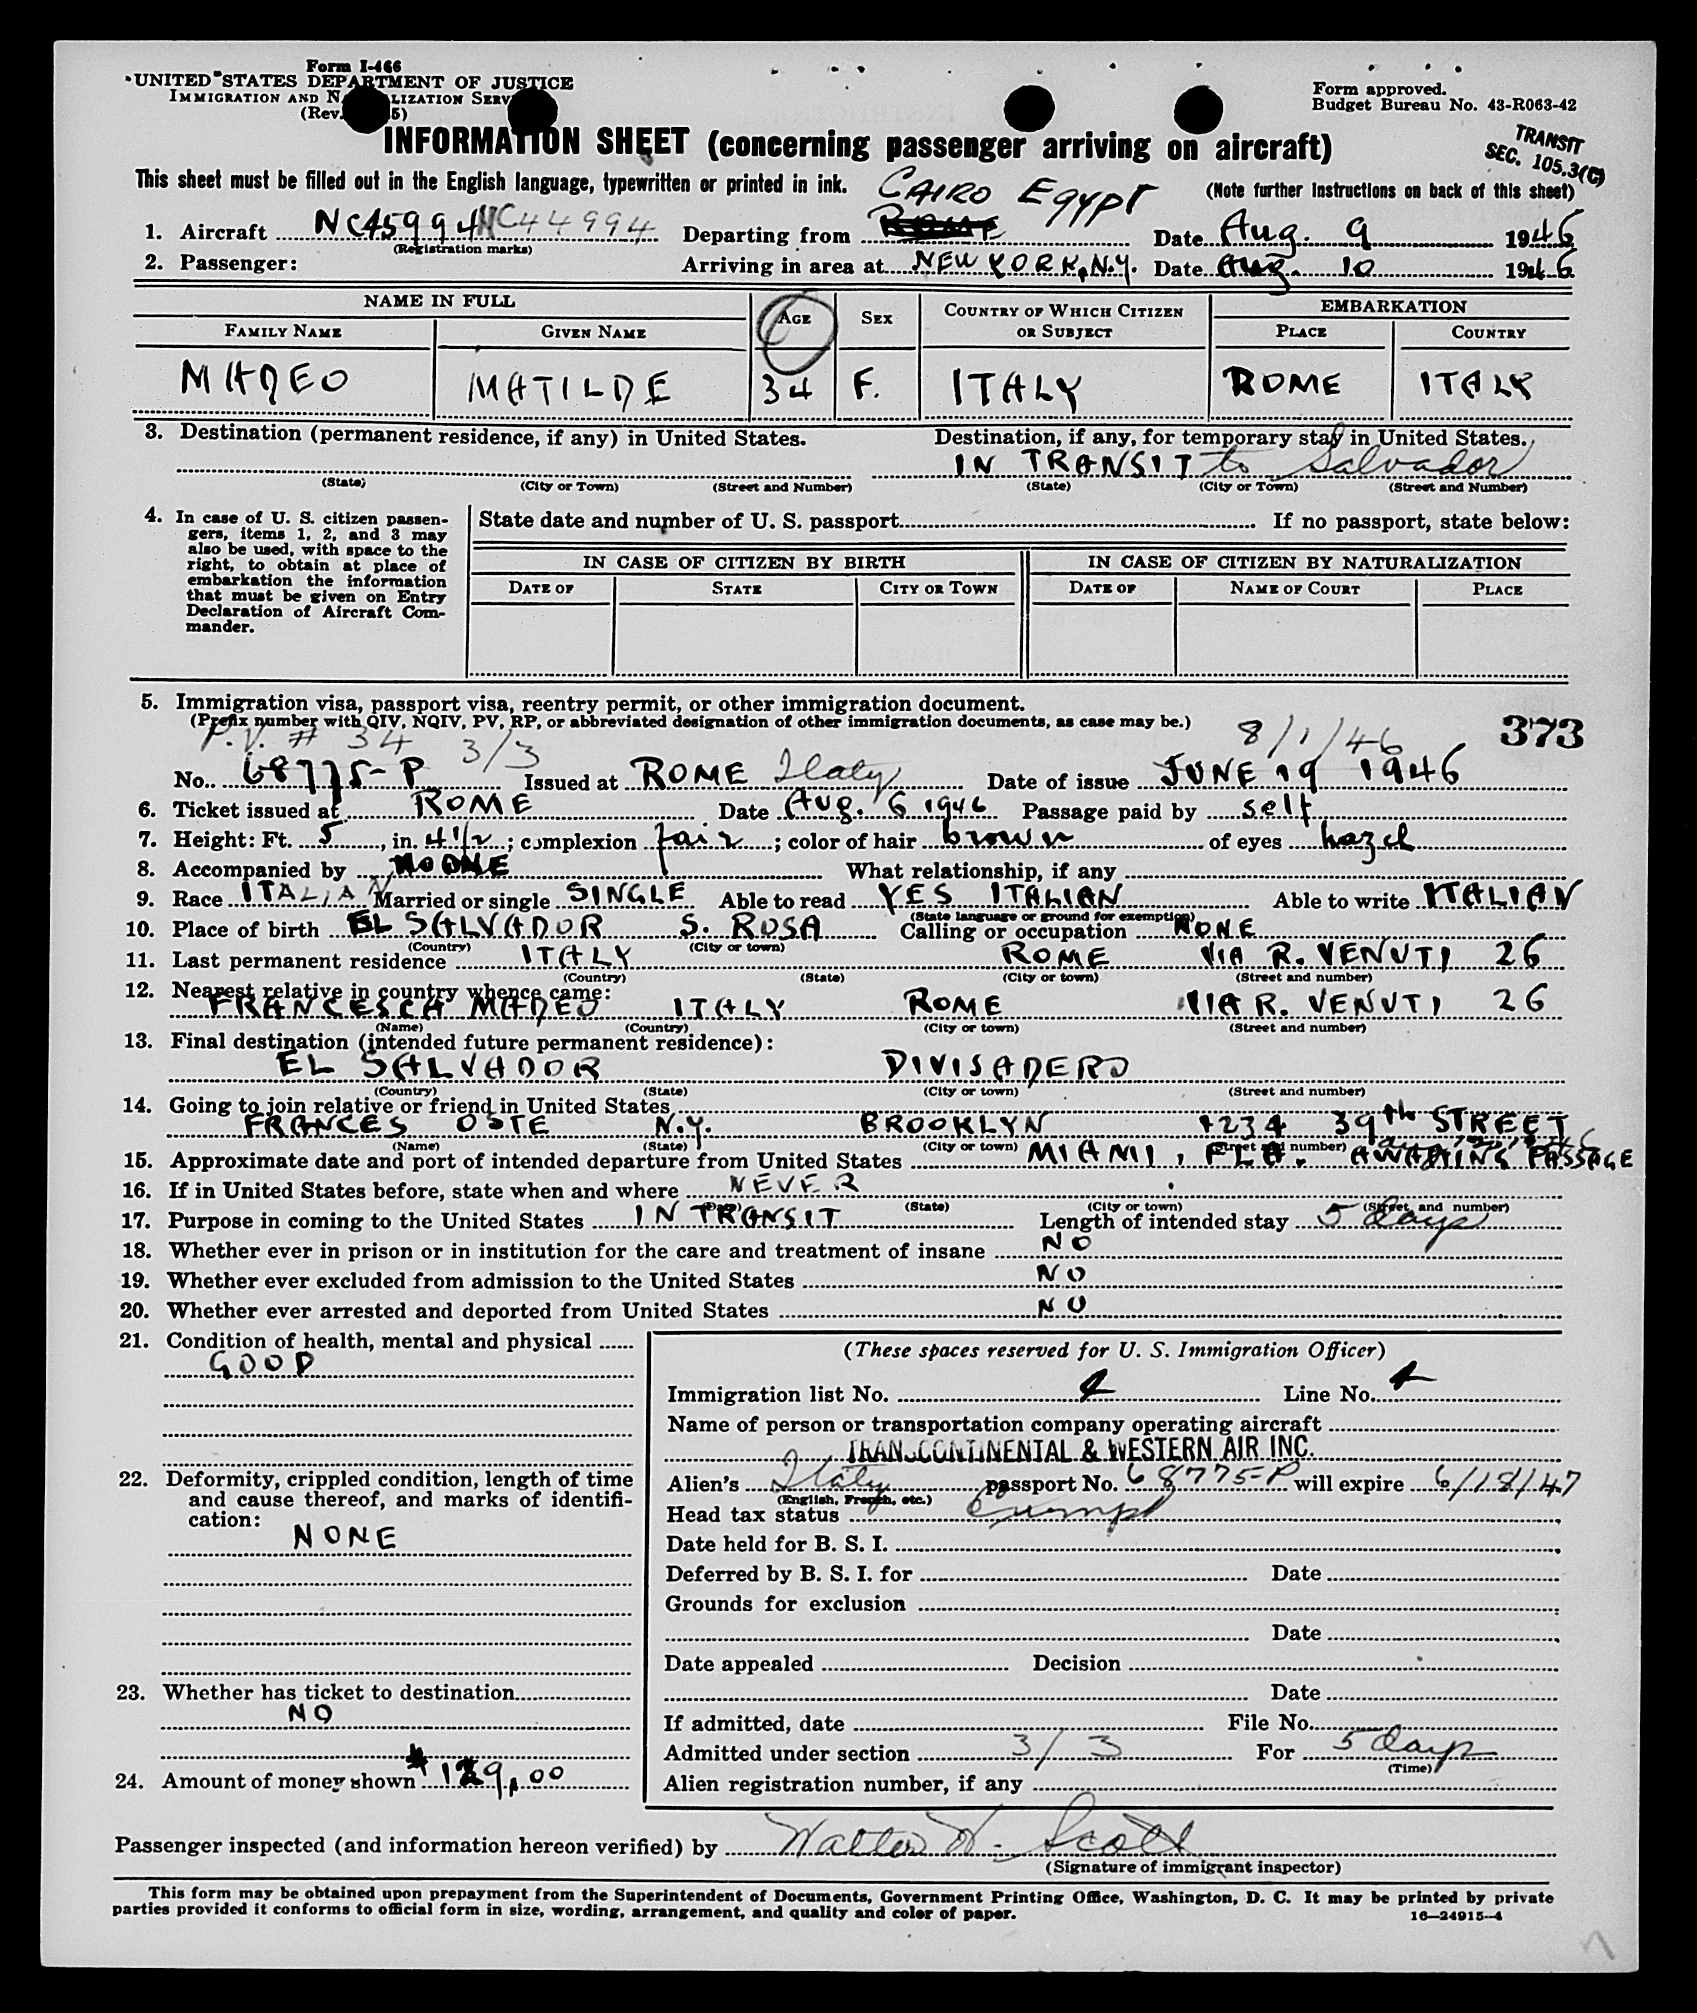 Form I-466
UNITED STATES DEPARTMENT OF JUSTICE
IMMIGRATION AND N LIZATION SERV
(Rev. 5)
Form approved.
Budget Bureau No. 43-R063-42
INFORMATION SHEET (concerning passenger arriving on aircraft)
TRANSIT
SEC. 105.3(C)
This sheet must be filled out in the English language, typewritten or printed in ink.
(Note further instructions on back of this sheet)
CAIRO EGYPT
1. Aircraft NC45994 NC44994 Departing from Date Aug. 9 1946
(Registration marks)
2. Passenger: Arriving in area at NEW YORK, N.Y. Date Aug. 10 1946
NAME IN FULL AGE SEX COUNTRY OF WHICH CITIZEN OR SUBJECT EMBARKATION
FAMILY NAME GIVEN NAME PLACE COUNTRY
MADEO MATILDE 34 F. ITALY ROME ITALY
3. Destination (permanent residence, if any) in United States. Destination, if any, for temporary stay in United States.
IN TRANSIT to Salvador
(State) (City or Town) (Street and Number) (State) (City or Town) (Street and Number)
4. In case of U. S. citizen passen-
gers, items 1, 2, and 3 may
also be used, with space to the
right, to obtain at place of
embarkation the information
that must be given on Entry
Declaration of Aircraft Com-
mander.
State date and number of U. S. passport If no passport, state below:
IN CASE OF CITIZEN BY BIRTH IN CASE OF CITIZEN BY NATURALIZATION
DATE OF STATE CITY OR TOWN DATE OF NAME OF COURT PLACE
5. Immigration visa, passport visa, reentry permit, or other immigration document.
(Prefix number with QIV, NQIV, PV, RP, or abbreviated designation of other immigration documents, as case may be.)
P.V. # 34 3/3 8/1/46 373
No. 68775-P Issued at ROME Italy Date of issue JUNE 19 1946
6. Ticket issued at ROME Date Aug. 6 1946 Passage paid by self
7. Height: Ft. 5, in. 4 1/2; complexion fair; color of hair brown of eyes hazel
8. Accompanied by NOONE What relationship, if any
9. Race ITALIAN Married or single SINGLE Able to read YES ITALIAN Able to write ITALIAN
(State language or ground for exemption)
10. Place of birth EL SALVADOR S. ROSA Calling or occupation NONE
(Country) (City or town)
11. Last permanent residence ITALY ROME VIA R. VENUTI 26
(Country) (State) (City or town) (Street and number)
12. Nearest relative in country whence came:
FRANCESCA MADEO ITALY ROME VIA R. VENUTI 26
(Name) (Country) (City or town) (Street and number)
13. Final destination (intended future permanent residence):
EL SALVADOR DIVISADERO
(Country) (State) (City or town) (Street and number)
14. Going to join relative or friend in United States
FRANCES OSTE N.Y. BROOKLYN 1234 39th STREET
(Name) (State) (City or town) (Street and number)
15. Approximate date and port of intended departure from United States MIAMI, FLA. AWAITING PASSAGE
16. If in United States before, state when and where NEVER
(State) (City or town) (Street and number)
17. Purpose in coming to the United States IN TRANSIT Length of intended stay 5 days
18. Whether ever in prison or in institution for the care and treatment of insane NO
19. Whether ever excluded from admission to the United States NO
20. Whether ever arrested and deported from United States NO
21. Condition of health, mental and physical
GOOD
22. Deformity, crippled condition, length of time
and cause thereof, and marks of identifi-
cation:
NONE
23. Whether has ticket to destination
NO
24. Amount of money shown
(These spaces reserved for U. S. Immigration Officer)
Immigration list No. 4 Line No.
Name of person or transportation company operating aircraft
TRANSCONTINENTAL & WESTERN AIR INC.
Alien's Italy passport No. 68775-P will expire 6/18/47
(English, French, etc.)
Head tax status Exempt
Date held for B. S. I.
Deferred by B. S. I. for Date
Grounds for exclusion
Date
Date appealed Decision
Date
If admitted, date File No.
Admitted under section 3/3 For 5 days
(Time)
Alien registration number, if any
Passenger inspected (and information hereon verified) by Walter W. Scott
(Signature of immigrant inspector)
This form may be obtained upon prepayment from the Superintendent of Documents, Government Printing Office, Washington, D. C. It may be printed by private
parties provided it conforms to official form in size, wording, arrangement, and quality and color of paper.
16—24915-4